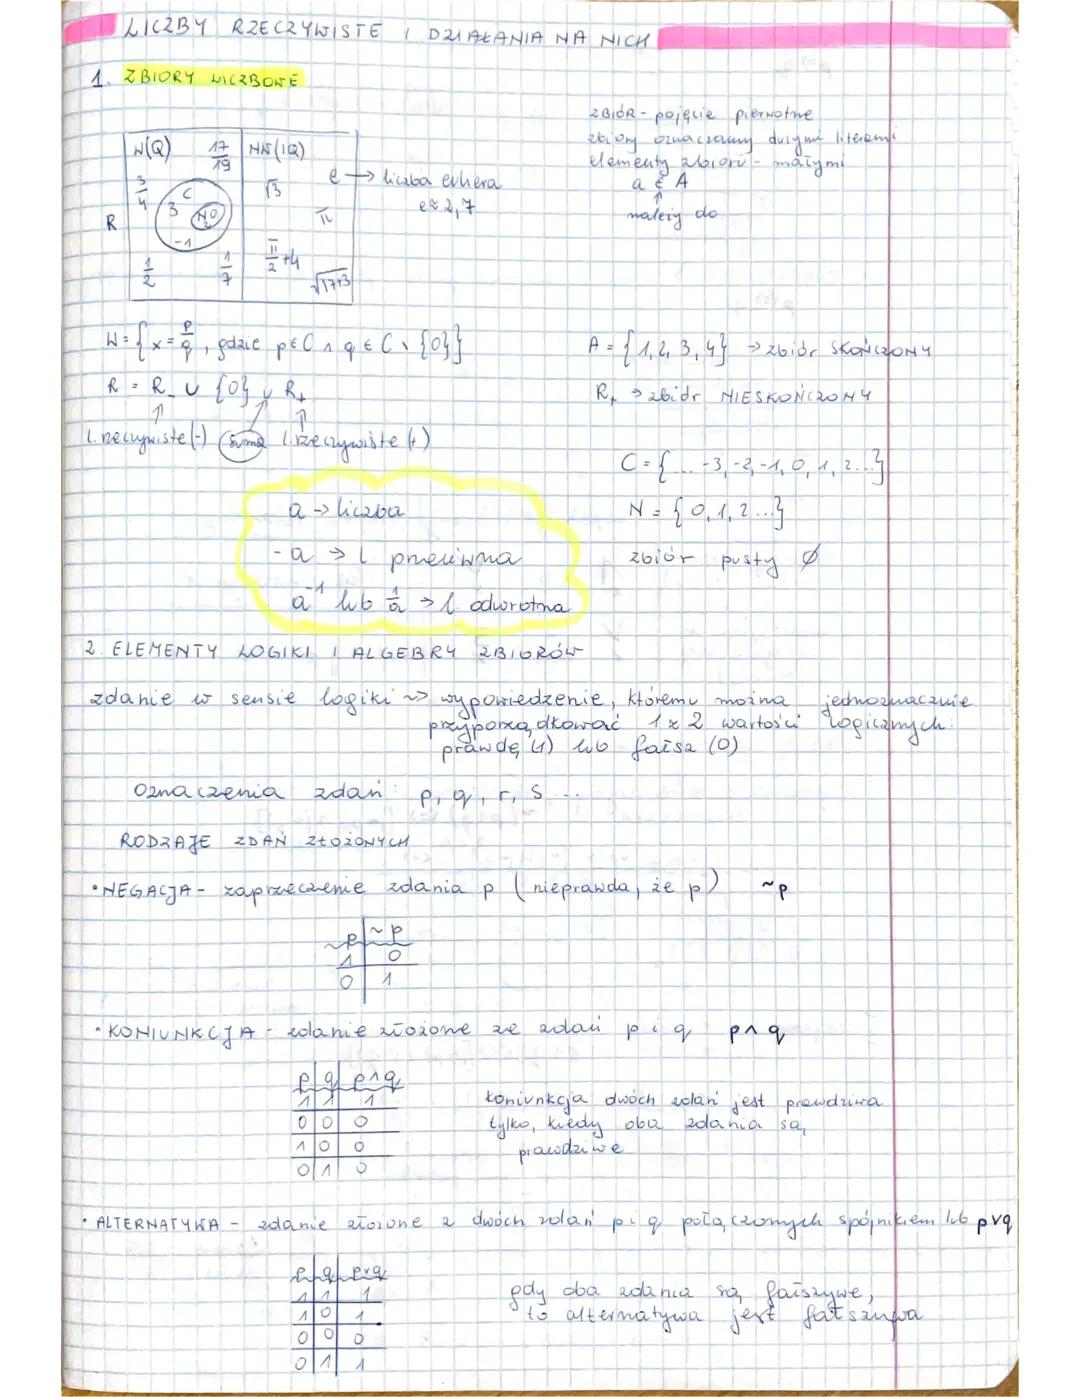 LICZBY RZECZYWISTE I DZIAŁANIA NA NICH
1. ZBIORY LICZBOWE
ZBIÓR - pojęcie pierwotne
zbiory oznaczamy dużymi literami
elementy zbioru - małymi
a ∈ A
↑
należy do
W(Q) 17/19 NW(IQ)
3/4 C 3 N 0 -1 √3 e → liczba eulera
e≈2,7
R π
1/2 1/7 π/2+4 √17+3
W = {x = p/q, gdzie p ∈ C ∧ q ∈ C \ {0}}
A = {1, 2, 3, 4} → zbiór SKOŃCZONY
R = R_ ∪ {0} ∪ R+
R+ → zbiór NIESKOŃCZONY
l. rzeczywiste (-) suma l. rzeczywiste (+)
C = {... -3, -2, -1, 0, 1, 2...}
a → liczba
N = {0, 1, 2...}
- a → l. przeciwna
zbiór pusty ∅
a⁻¹ lub 1/a → l. odwrotna
2. ELEMENTY LOGIKI I ALGEBRY ZBIORÓW
zdanie w sensie logiki ~> wypowiedzenie, któremu można jednoznacznie
przyporządkować 1 z 2 wartości logicznych:
prawdę (1) lub fałsz (0)
Oznaczenia zdań: p, q, r, s ...
RODZAJE ZDAŃ ZŁOŻONYCH
• NEGACJA - zaprzeczenie zdania p (nieprawda, że p) ~p
p | ~p
1 | 0
0 | 1
• KONIUNKCJA - zdanie złożone ze zdań p i q p ∧ q
p | q | p∧q
1 | 1 | 1
0 | 0 | 0
1 | 0 | 0
0 | 1 | 0
koniunkcja dwóch zdań jest prawdziwa
tylko, kiedy oba zdania są
prawdziwe
• ALTERNATYWA - zdanie złożone z dwóch zdań p i q połączonych spójnikiem lub p∨q
p | q | p∨q
1 | 1 | 1
1 | 0 | 1
0 | 0 | 0
0 | 1 | 1
gdy oba zdania są fałszywe,
to alternatywa jest fałszywa